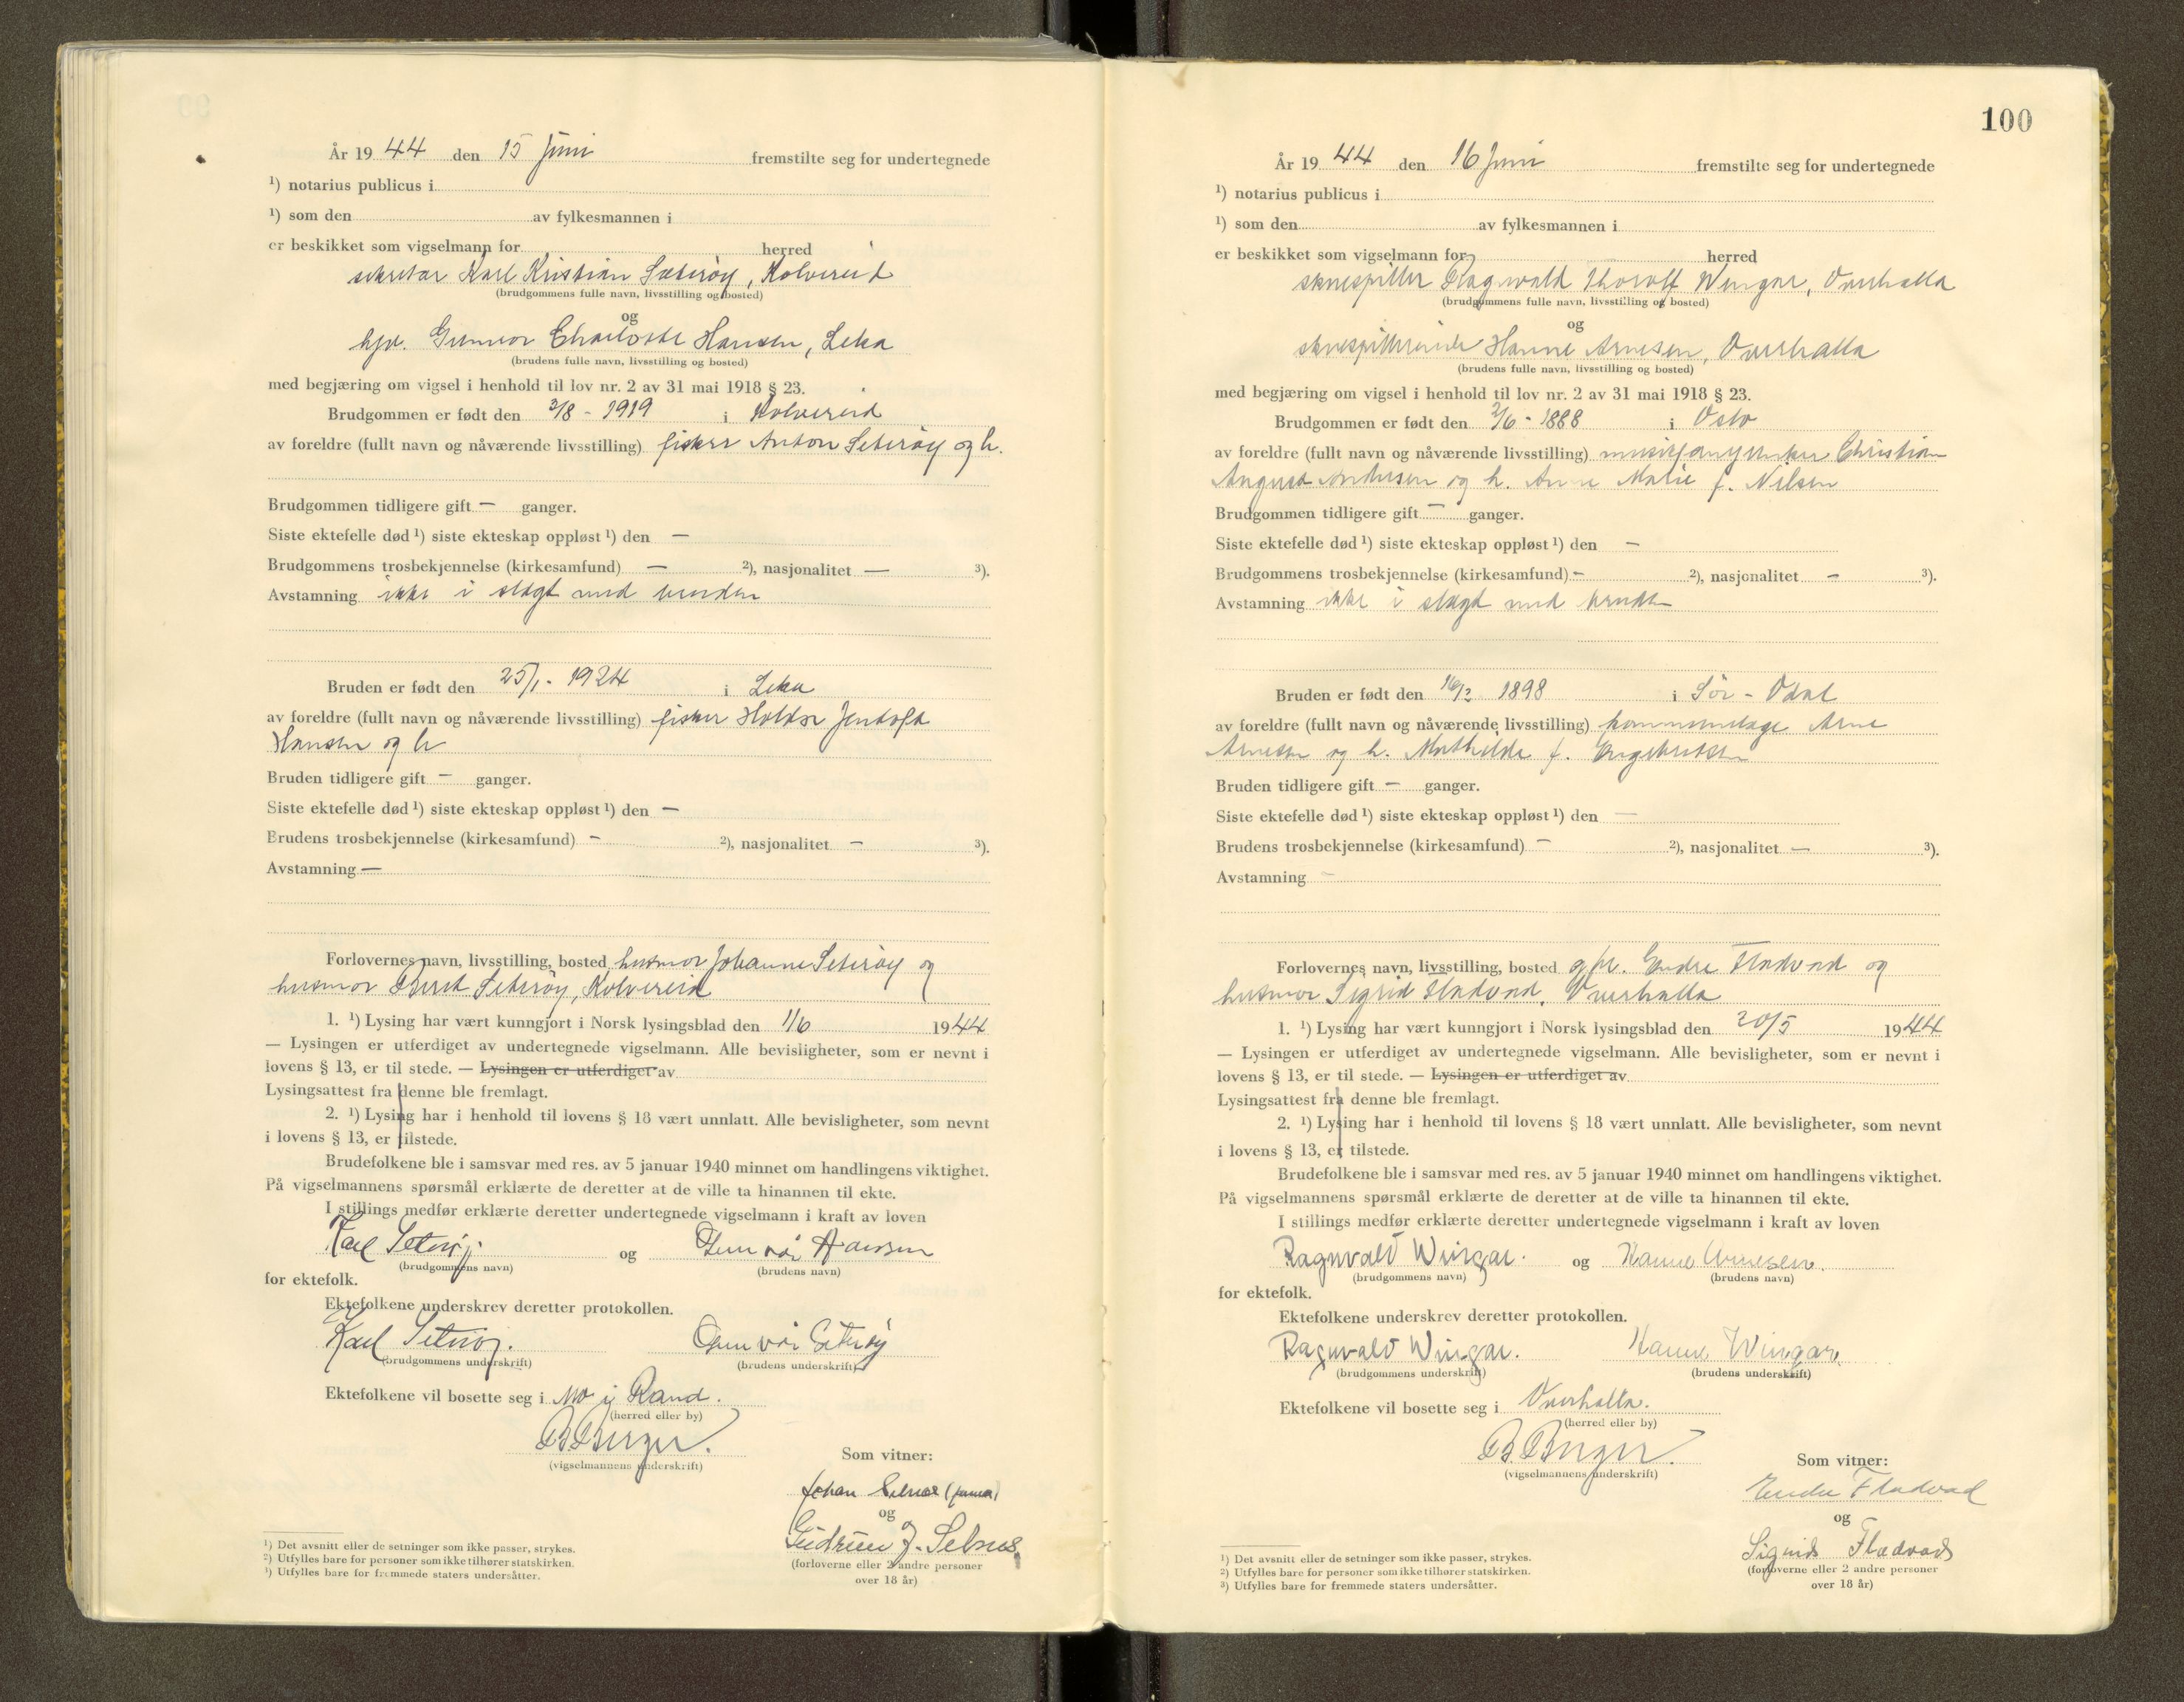 År 19 44 den 15 Juni fremstilte seg for undertegnede
¹) notarius publicus i
¹) som den av fylkesmannen i
er beskikket som vigselmann for herred
sekretær Karl Kristian Seterøy, Kolvereid
(brudgommens fulle navn, livsstilling og bosted)
og
hjv. Gunvor Charlotte Hansen, Leka
(brudens fulle navn, livsstilling og bosted)
med begjæring om vigsel i henhold til lov nr. 2 av 31 mai 1918 § 23.
Brudgommen er født den 3/8 - 1919 i Kolvereid
av foreldre (fullt navn og nåværende livsstilling) fisker Anton Seterøy og h.
Brudgommen tidligere gift — ganger.
Siste ektefelle død ¹) siste ekteskap oppløst ¹) den —
Brudgommens trosbekjennelse (kirkesamfund) — ²), nasjonalitet — ³).
Avstamning ikke i slägt med bruden
Bruden er født den 25/1 - 1924 i Leka
av foreldre (fullt navn og nåværende livsstilling) fisker Holder Jentoft
Hansen og h
Bruden tidligere gift — ganger.
Siste ektefelle død ¹) siste ekteskap oppløst ¹) den —
Brudens trosbekjennelse (kirkesamfund) — ²), nasjonalitet — ³).
Avstamning —
Forlovernes navn, livsstilling, bosted husmor Johanne Seterøy og
husmor Berit Seterøy, Kolvereid
1. ¹) Lysing har vært kunngjort i Norsk lysingsblad den 1/6 1944
— Lysingen er utferdiget av undertegnede vigselmann. Alle bevisligheter, som er nevnt i
lovens § 13, er til stede. — Lysingen er utferdiget av
Lysingsattest fra denne ble fremlagt.
2. ¹) Lysing har i henhold til lovens § 18 vært unnlatt. Alle bevisligheter, som nevnt
i lovens § 13, er tilstede.
Brudefolkene ble i samsvar med res. av 5 januar 1940 minnet om handlingens viktighet.
På vigselmannens spørsmål erklærte de deretter at de ville ta hinannen til ekte.
I stillings medfør erklærte deretter undertegnede vigselmann i kraft av loven
Karl Seterøy. og Gunvor Hansen
(brudgommens navn) (brudens navn)
for ektefolk.
Ektefolkene underskrev deretter protokollen.
Karl Seterøy. Gunvor Seterøy
(brudgommens underskrift) (brudens underskrift)
Ektefolkene vil bosette seg i Mo i Rand.
(herred eller by)
B. Berger.
(vigselmannens underskrift)
Som vitner:
Johan Selnes
og
Gudrun J. Selnes.
(forloverne eller 2 andre personer
over 18 år)
¹) Det avsnitt eller de setninger som ikke passer, strykes.
²) Utfylles bare for personer som ikke tilhører statskirken.
³) Utfylles bare for fremmede staters undersåtter.
100
År 19 44 den 16 Juni fremstilte seg for undertegnede
¹) notarius publicus i
¹) som den av fylkesmannen i
er beskikket som vigselmann for herred
skuespiller Ragnvald Thorolf Wingar, Overhalla
(brudgommens fulle navn, livsstilling og bosted)
og
skuespillerinde Hanne Arnesen, Overhalla
(brudens fulle navn, livsstilling og bosted)
med begjæring om vigsel i henhold til lov nr. 2 av 31 mai 1918 § 23.
Brudgommen er født den 2/6 - 1888 i Oslo
av foreldre (fullt navn og nåværende livsstilling) Christian
August Andersen og h. Anne Marie f. Nilsen
Brudgommen tidligere gift — ganger.
Siste ektefelle død ¹) siste ekteskap oppløst ¹) den —
Brudgommens trosbekjennelse (kirkesamfund) — ²), nasjonalitet — ³).
Avstamning ikke i slägt med bruden
Bruden er født den 16/2 1898 i Sør - Odal
av foreldre (fullt navn og nåværende livsstilling) Arne
Arnesen og h. Mathilde f. Engebretsen
Bruden tidligere gift — ganger.
Siste ektefelle død ¹) siste ekteskap oppløst ¹) den —
Brudens trosbekjennelse (kirkesamfund) — ²), nasjonalitet — ³).
Avstamning —
Forlovernes navn, livsstilling, bosted gbr. Endre Fladvad og
husmor Sigrid Fladvad, Overhalla
1. ¹) Lysing har vært kunngjort i Norsk lysingsblad den 20/5 1944
— Lysingen er utferdiget av undertegnede vigselmann. Alle bevisligheter, som er nevnt i
lovens § 13, er til stede. — Lysingen er utferdiget av
Lysingsattest fra denne ble fremlagt.
2. ¹) Lysing har i henhold til lovens § 18 vært unnlatt. Alle bevisligheter, som nevnt
i lovens § 13, er tilstede.
Brudefolkene ble i samsvar med res. av 5 januar 1940 minnet om handlingens viktighet.
På vigselmannens spørsmål erklærte de deretter at de ville ta hinannen til ekte.
I stillings medfør erklærte deretter undertegnede vigselmann i kraft av loven
Ragnvald Wingar. og Hanne Arnesen.
(brudgommens navn) (brudens navn)
for ektefolk.
Ektefolkene underskrev deretter protokollen.
Ragnvald Wingar. Hanne Wingar.
(brudgommens underskrift) (brudens underskrift)
Ektefolkene vil bosette seg i Overhalla.
(herred eller by)
B. Berger.
(vigselmannens underskrift)
Som vitner:
Endre Fladvad
og
Sigrid Fladvad
(forloverne eller 2 andre personer
over 18 år)
¹) Det avsnitt eller de setninger som ikke passer, strykes.
²) Utfylles bare for personer som ikke tilhører statskirken.
³) Utfylles bare for fremmede staters undersåtter.